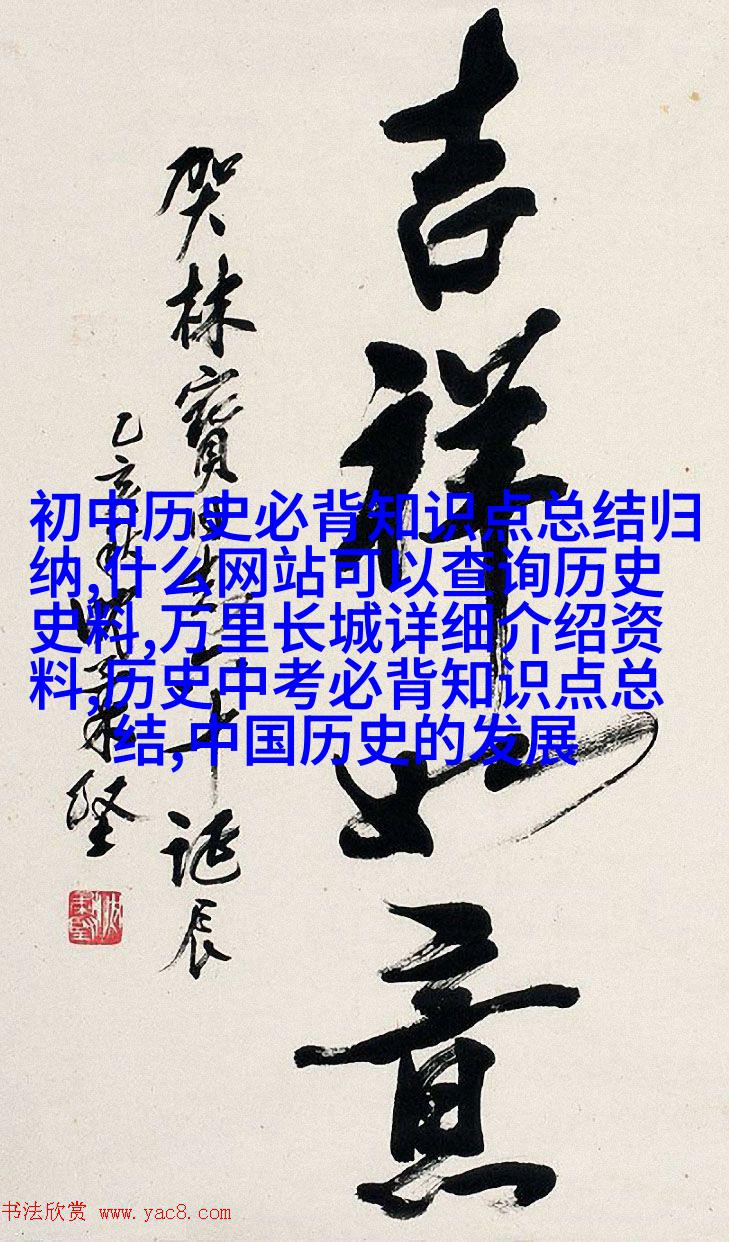 吉祥如意
贺林宝
诞辰
乙亥
坚
初中历史必背知识点总结归
纳,什么网站可以查询历史
史料,万里长城详细介绍资
料,历史中考必背知识点总
结,中国历史的发展
书法欣赏 www.yac8.com